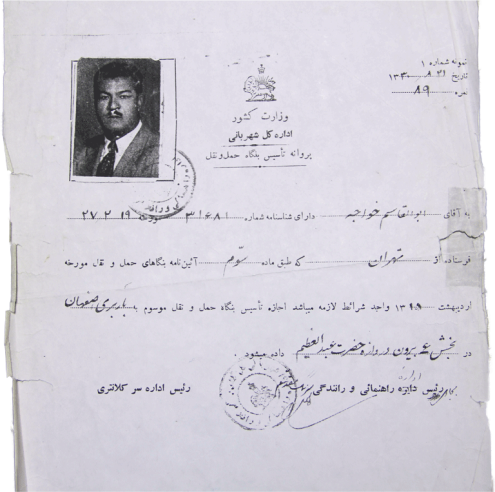 نمونه شماره ۱
تاریخ ۲۱ ر ۸ ر ۱۳۳۰
نمره ۸۹
وزارت کشور
اداره کل شهربانی
پروانه تأسیس بنگاه حمل و نقل
به آقای ابوالقاسم خواجه دارای شناسنامه شماره ۳۱۶۸۱ ۱۹ ر ۲ ر ۲۷
فرستاده از تهران که طبق ماده سوم آئین‌نامه بنگاهای حمل و نقل مورخه
اردیبهشت ۱۳۱۹ واجد شرائط لازمه میباشد اجازه تأسیس بنگاه حمل و نقل موسوم به باربری اصفهان
در بخش بیرون دروازه حضرت عبدالعظیم داده میشود .
رئیس دایره راهنمائی و رانندگی رئیس اداره سر کلانتری